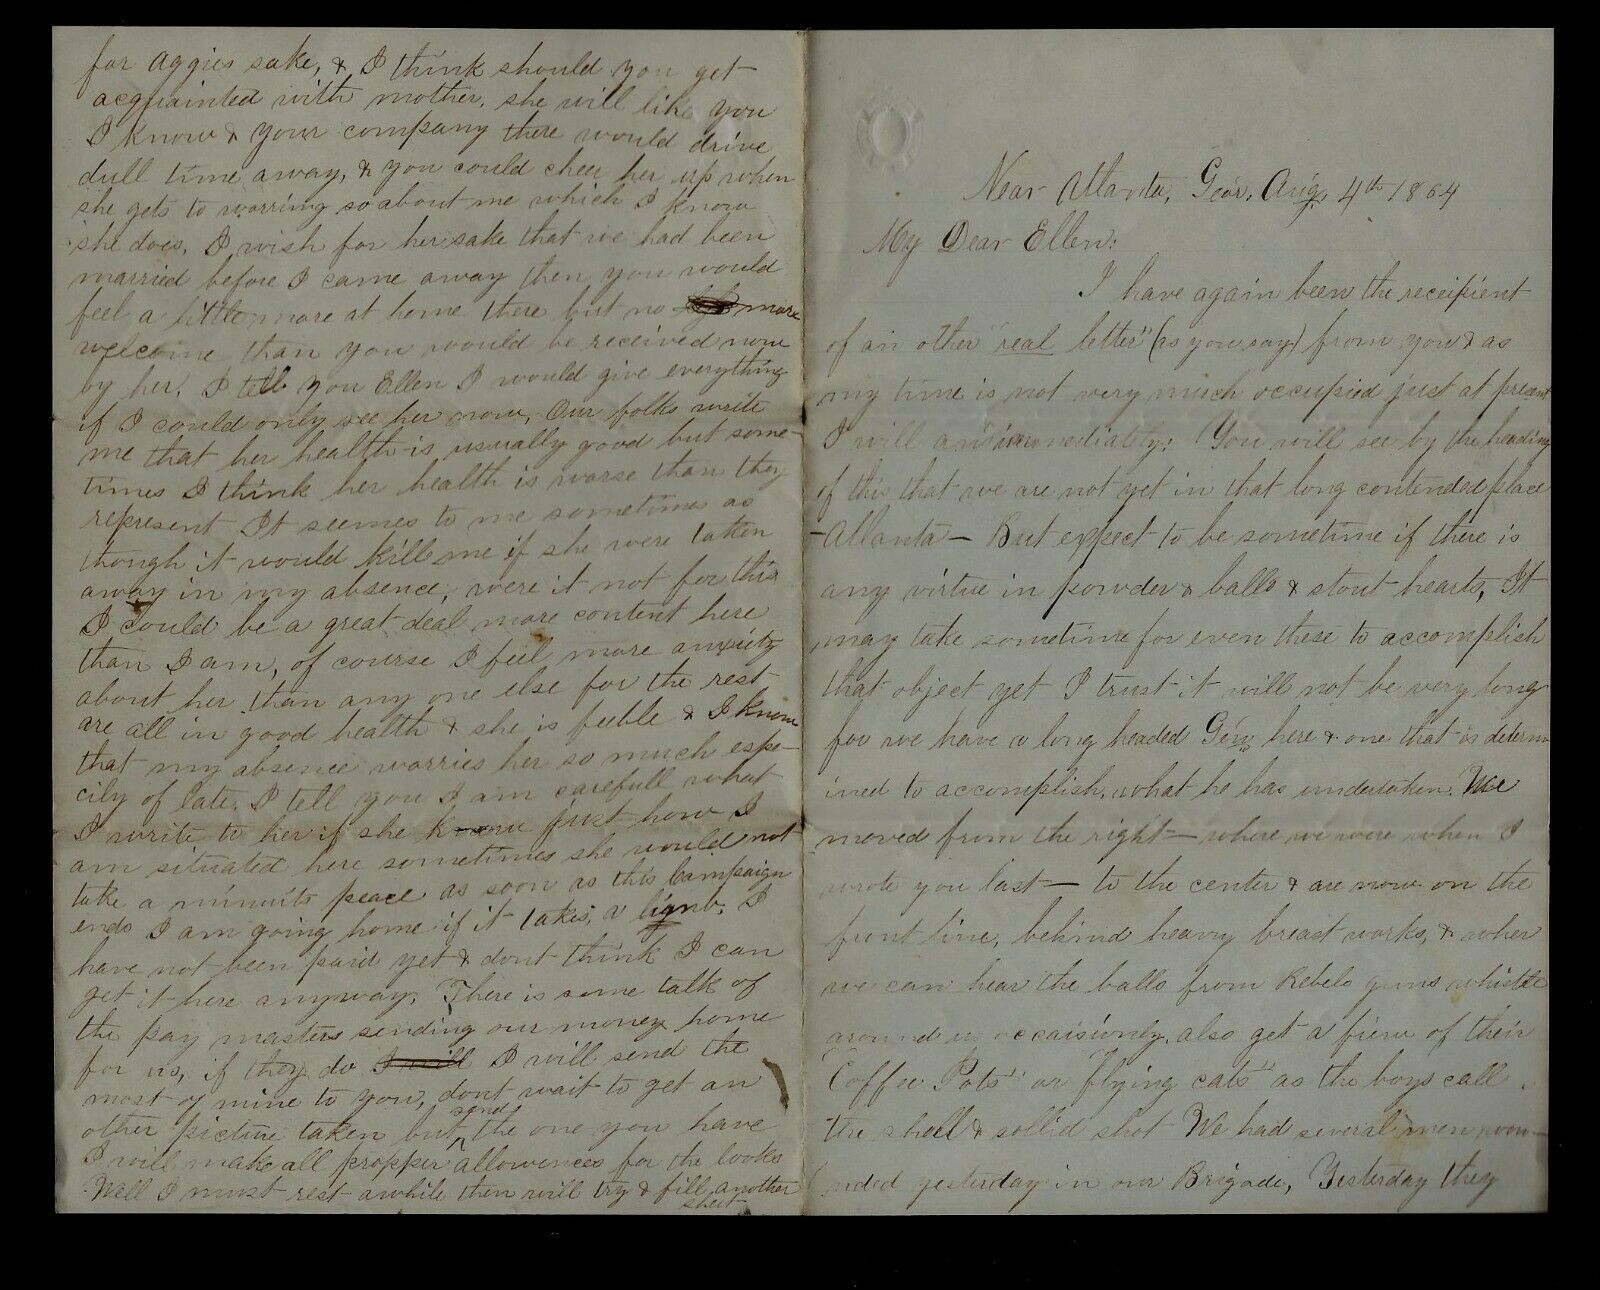 for Aggies sake, & I think should you get
acquainted with mother, she will like you
I know & your company there would drive
dull time away, & you could cheer her up when
she gets to worring so about me which I know
she does, I wish for her sake that we had been
married before I came away then you would
feel a little more at home there but no more
welcome than you would be received now
by her! I tell you Ellen I would give everything
if I could only see her now, Our folks write
me that her health is usually good but some-
times I think her health is worse than they
represent It seemes to me sometimes as
though it would kill me if she were taken
away in my absence, were it not for this
I could be a great deal more content here
than I am, of course I feel more anxiety
about her than any one else for the rest
are all in good health & she is feeble & I know
that my absence worries her so much espe-
cily of late. I tell you I am carefull what
I write to her if she know just how I
am situated here sometimes she would not
take a minuits peace as soon as this Campaign
ends I am going home if it takes a limb. I
have not been paid yet & dont think I can
get it here anyway, There is some talk of
the pay masters sending our money home
for us, if they do I will I will send the
most of mine to you, dont wait to get an
other picture taken but send the one you have
I will make all propper allowences for the looks
Well I must rest awhile then will try & fill another
sheet
Near Atlanta, Geor, Aug, 4th 1864
My Dear Ellen:
I have again been the receipient
of an other "real letter" (as you say) from you & as
my time is not very much occupied just at present
I will immediatly: You will see by the heading
of this that we are not yet in that long contended place
-Atlanta- But expect to be sometime if there is
any virtue in powder & balls & stout hearts, It
may take sometime for even these to accomplish
that object yet I trust it will not be very long
for we have a long headed Gen here & one that is determ-
ined to accomplish, what he has undertaken. We
moved from the right- where we were when I
wrote you last- to the center & are now on the
front line, behind heavy breast works, & wher
we can hear the balls from Rebels guns whistle
around us occaisionly, also get a view of their
"Coffee Pots" or "flying cats" as the boys call
the shell & sollid shot We had several men woun-
nded yesterday in our Brigade, Yesterday they